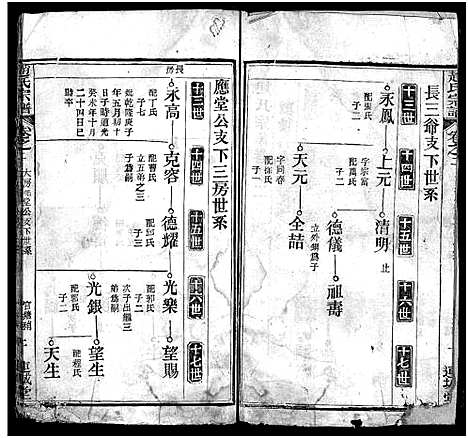 長三爺支下世系
十三世
十四世
十五世
十六世
十七世
永鳳
配張氏
子二
上元
字宗富
配萬氏
子一
清明
止
天元
字同春
配孫氏
子二
德儀
立外甥為子
祖壽
全喆
趙氏宗譜
卷之一
應堂公支下三房世系
十三世
十四世
十五世
十六世
十七世
長房
永高
配丁氏
子七
乾隆庚子
年五月初十
日子時道光
癸未年十月
二十四日巳
時卒
克容
配曹氏
立五弟之三
子為嗣
德耀
配邵氏
子三
光樂
配郭氏
次子出繼三
弟為嗣
望賜
光銀
配郭氏
子二
望生
配程氏
子一
天生
大房應堂公支下世系